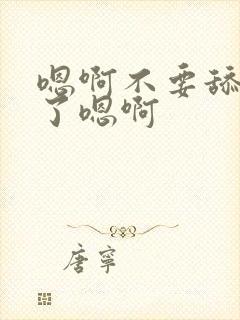 嗯啊不要舔
了嗯啊
唐寧